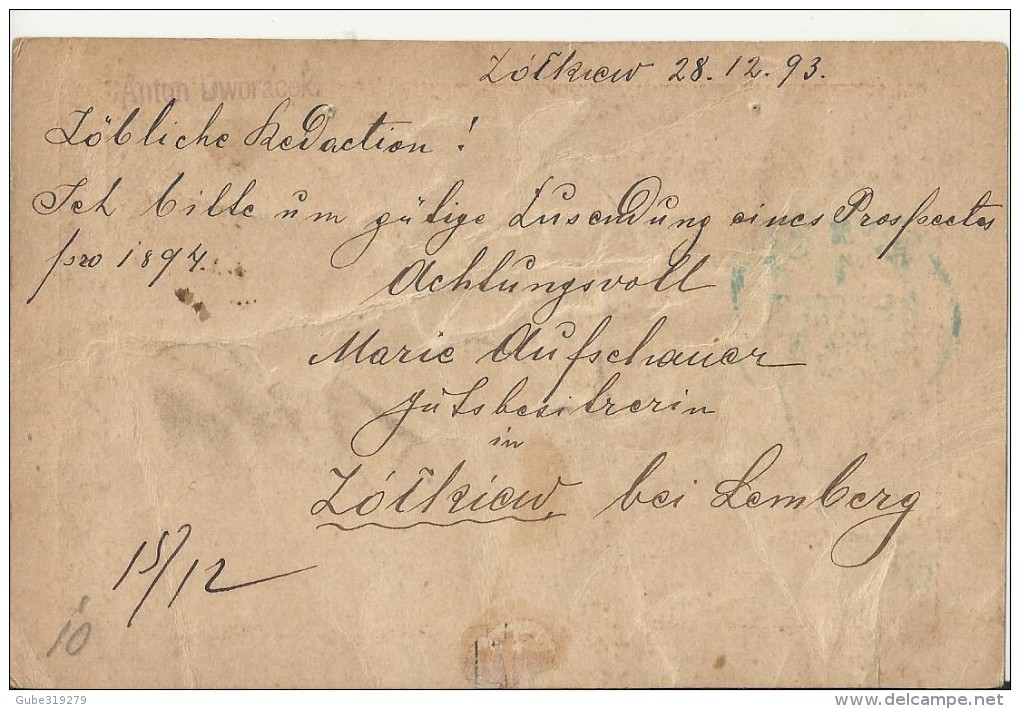 Żółkiew 28.12.93.
Anton Dworacek.
Löbliche Redaction!
Ich bitte um gütige Zusendung eines Prospectes
pro 1894.
Achtungsvoll
Marie Aufschauer
Gutsbesitzerin
in
Żółkiew, bei Lemberg
15/12
10
Gube319279
www.delcampe.net